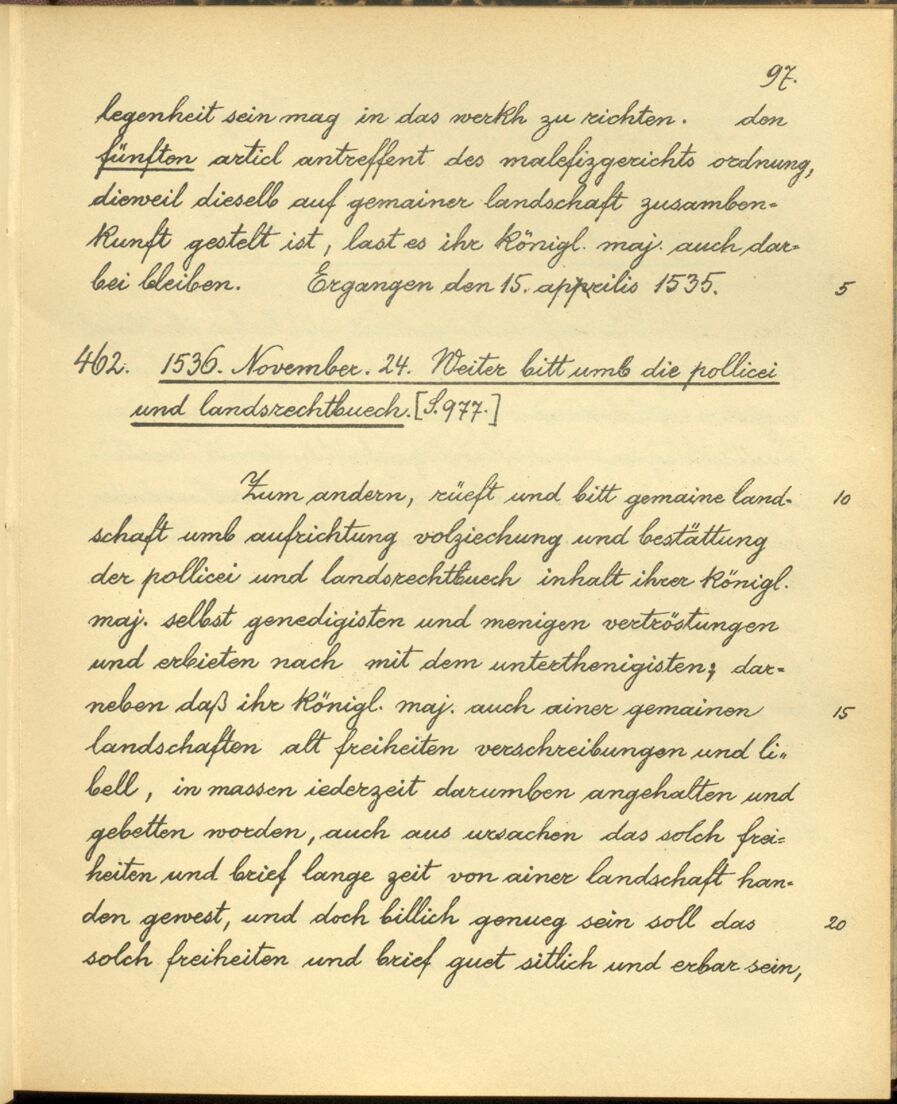 97.
legenheit sein mag in das werkh zu richten. den
fünften articl antreffent des malefizgerichts ordnung,
dieweil dieselb auf gemainer landschaft zusamben-
kunft gestelt ist, last es ihr königl. maj. auch dar-
bei bleiben. Ergangen den 15. apprilis 1535. 5
462. 1536. November. 24. Weiter bitt umb die pollicei
und landsrechtbuech. [S. 977.]
Zum andern, rüeft und bitt gemaine land- 10
schaft umb aufrichtung volziechung und bestättung
der pollicei und landsrechtbuech inhalt ihrer königl.
maj. selbst genedigisten und menigen vertröstungen
und erbieten nach mit dem unterthenigisten; dar-
neben daß ihr königl. maj. auch ainer gemainen 15
landschaften alt freiheiten verschreibungen und li-
bell, in massen iederzeit darumben angehalten und
gebetten worden, auch aus ursachen das solch frei-
heiten und brief lange zeit von ainer landschaft han-
den gewest, und doch billich genueg sein soll das 20
solch freiheiten und brief guet sitlich und erbar sein,